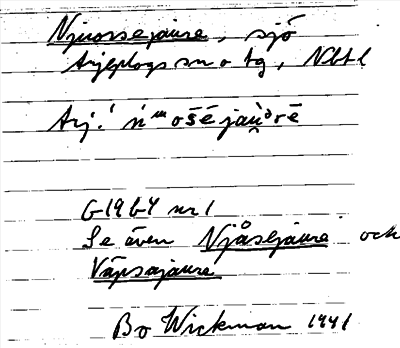 Njuorsejaure, sjö
Arjeplogs sn o tg, Nbt l
Arj. ń ᵚošéjau̯ᵓrē
G1964 nr 1
Se även Njåsejaure och
Väpsajaure
Bo Wickman 1941